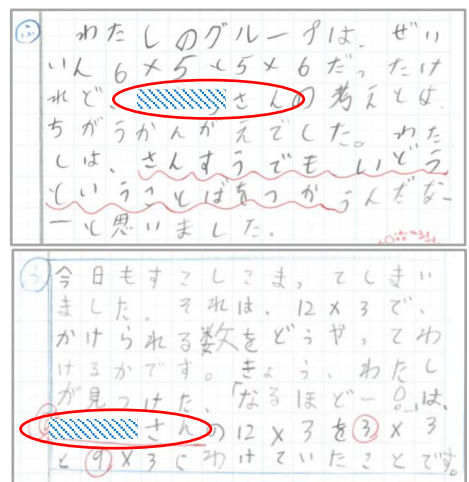 ふ わたしのグループは、ぜい
いん6×5と5×6だったけ
れど、さんの考えとは
ちがうかんがえでした。わた
しは、さんすうでもいどう
ということばをつかうんだな
ーと思いました。
う 今日もすこしこまってしまい
ました。それは、12×3で、
かけられる数をどうやってわ
けるかです。きょう、わたし
が見つけた、「なるほどー!」は、
さんの12×3を3×3
と9×3にわけていたことです。